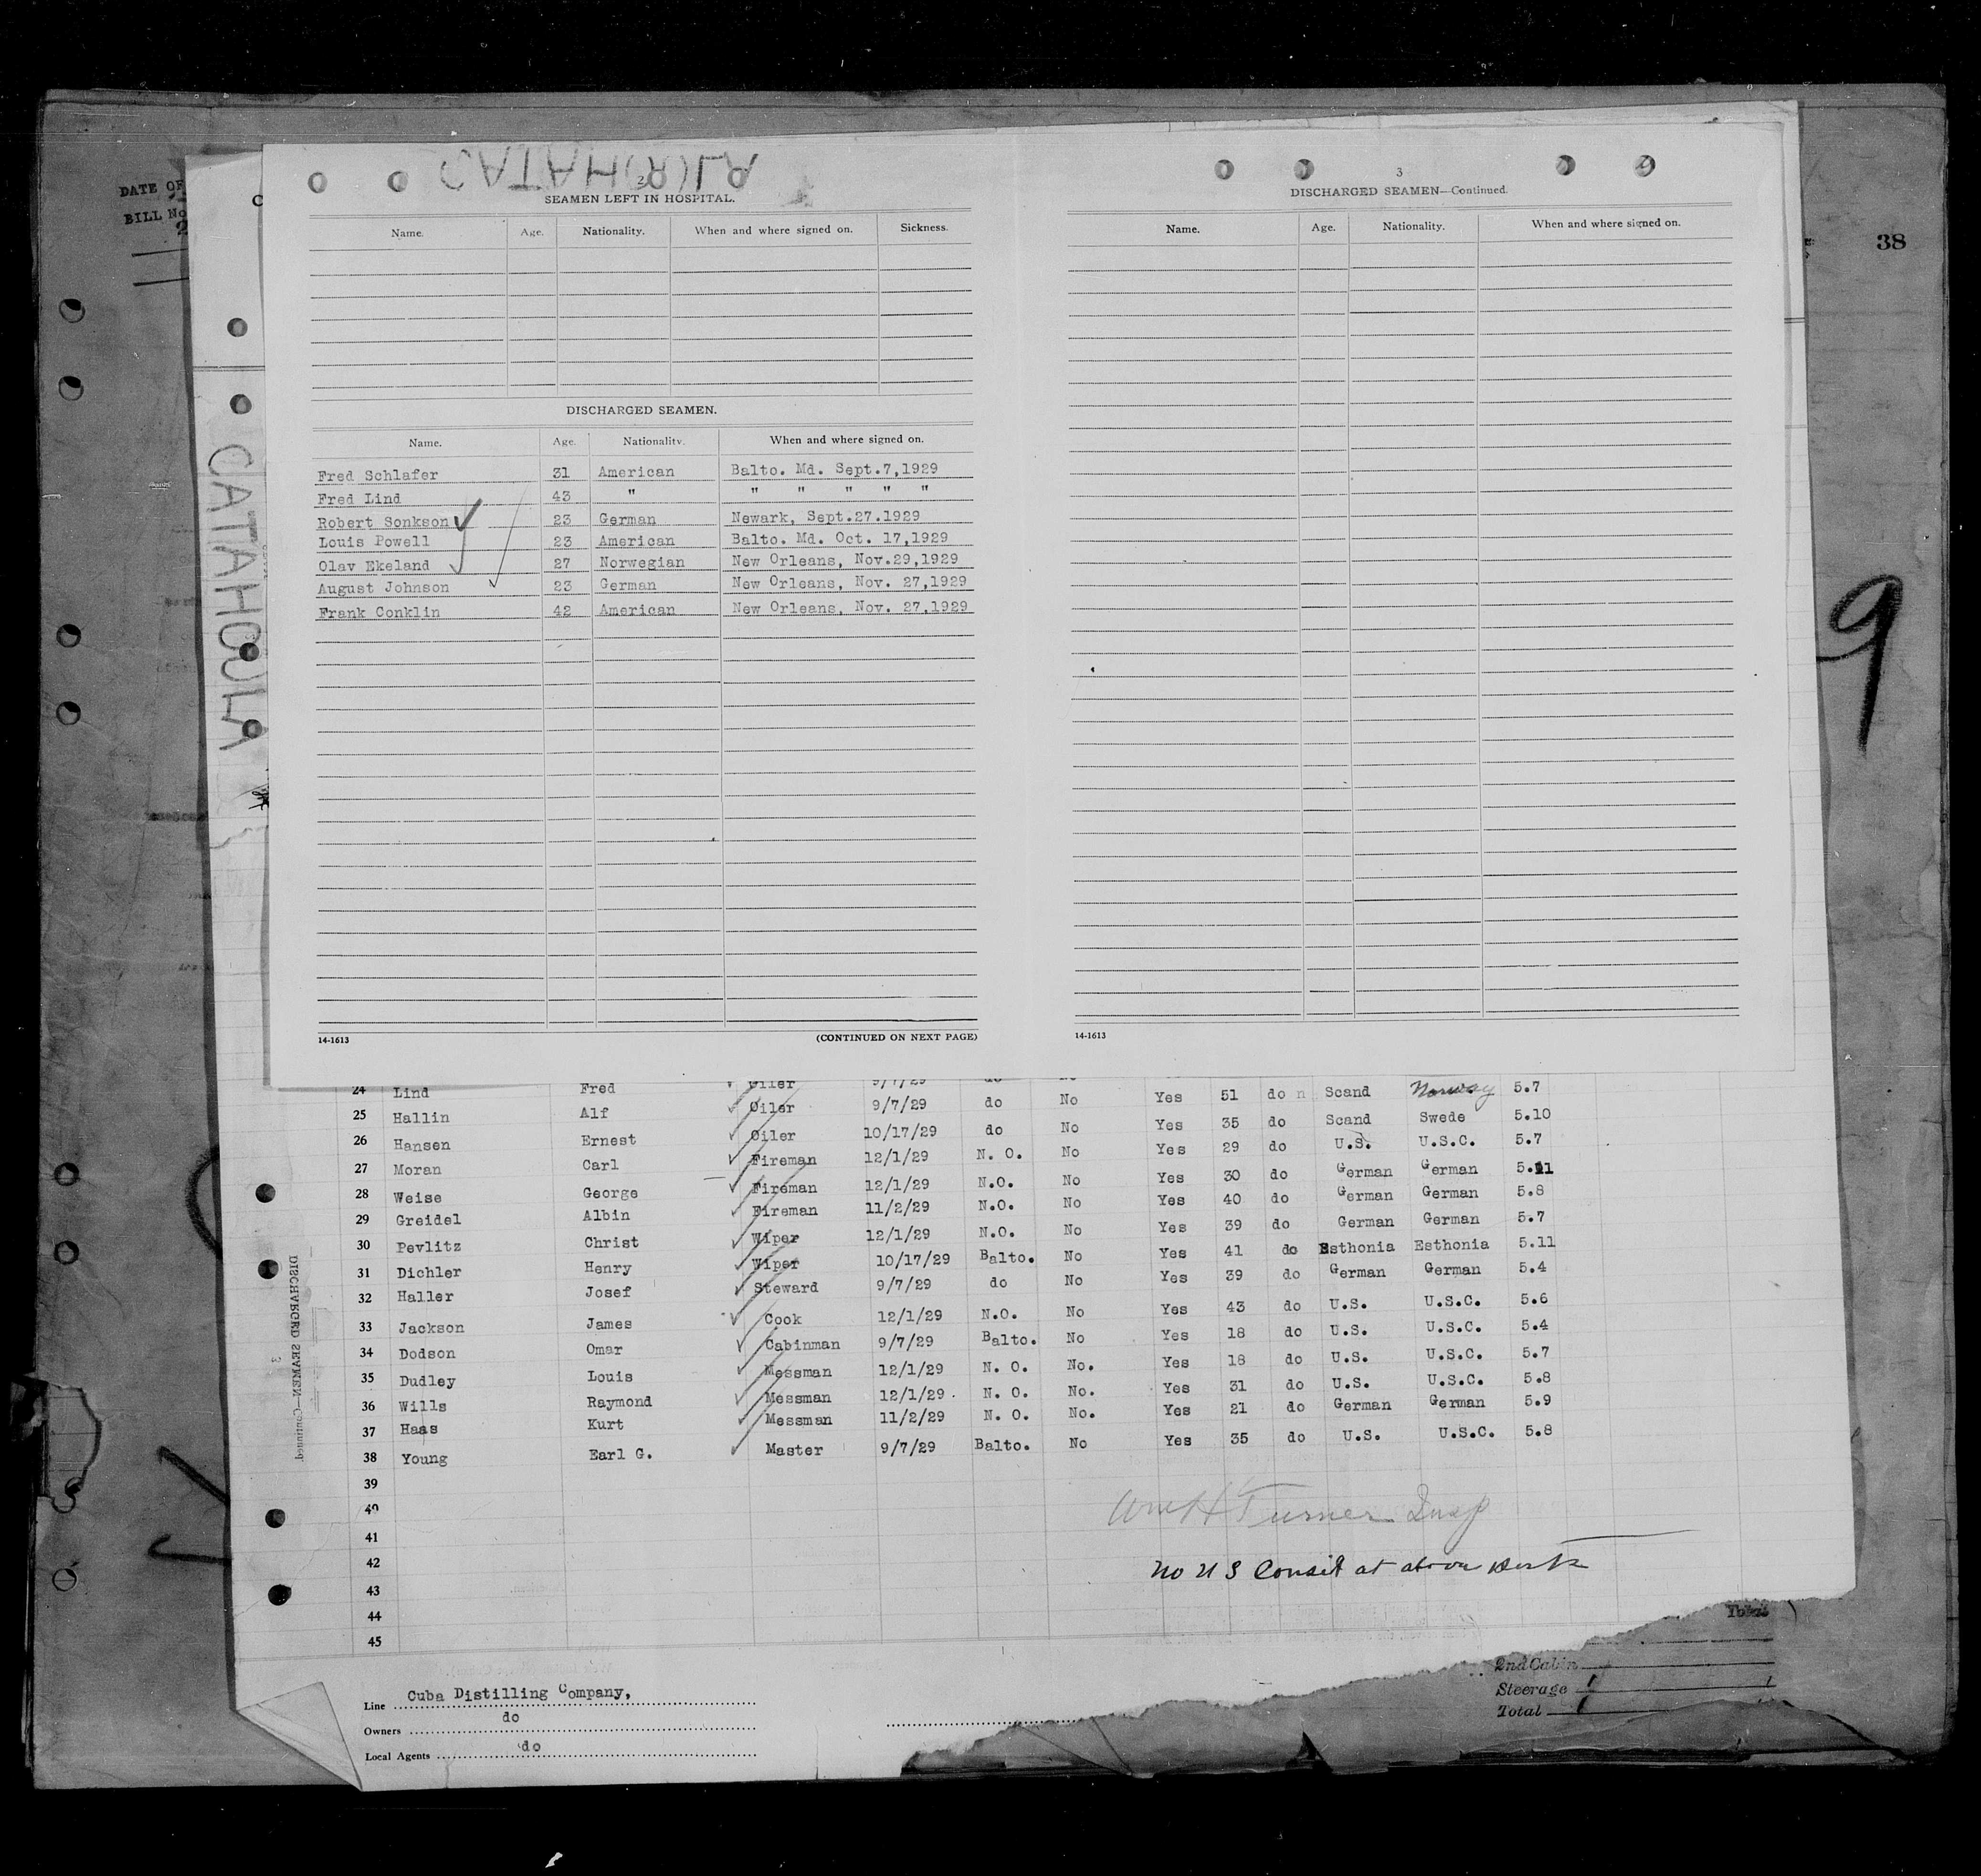 DATE OF
BILL No
38
CATAHOULA
2
SEAMEN LEFT IN HOSPITAL.
Name. Age. Nationality. When and where signed on. Sickness.
DISCHARGED SEAMEN.
Name. Age. Nationality. When and where signed on.
Fred Schlafer 31 American Balto. Md. Sept.7,1929
Fred Lind 43 " " " " " "
Robert Sonkson 23 German Newark, Sept.27.1929
Louis Powell 23 American Balto. Md. Oct. 17,1929
Olav Ekeland 27 Norwegian New Orleans, Nov.29,1929
August Johnson 23 German New Orleans, Nov. 27,1929
Frank Conklin 42 American New Orleans, Nov. 27,1929
14-1613 (CONTINUED ON NEXT PAGE)
3
DISCHARGED SEAMEN—Continued.
Name. Age. Nationality. When and where signed on.
14-1613
CATAHOULA
9
24 Lind Fred Oiler 9/7/29 do No Yes 51 do n Scand Norway 5.7
25 Hallin Alf Oiler 9/7/29 do No Yes 35 do Scand Swede 5.10
26 Hansen Ernest Oiler 10/17/29 do No Yes 29 do U.S. U.S.C. 5.7
27 Moran Carl Fireman 12/1/29 N. O. No Yes 30 do German German 5.11
28 Weise George Fireman 12/1/29 N.O. No Yes 40 do German German 5.8
29 Greidel Albin Fireman 11/2/29 N.O. No Yes 39 do German German 5.7
30 Pevlitz Christ Wiper 12/1/29 N.O. No Yes 41 do Esthonia Esthonia 5.11
31 Dichler Henry Wiper 10/17/29 Balto. No Yes 39 do German German 5.4
32 Haller Josef Steward 9/7/29 do No Yes 43 do U.S. U.S.C. 5.6
33 Jackson James Cook 12/1/29 N.O. No Yes 18 do U.S. U.S.C. 5.4
34 Dodson Omar Cabinman 9/7/29 Balto. No Yes 18 do U.S. U.S.C. 5.7
35 Dudley Louis Messman 12/1/29 N. O. No. Yes 31 do U.S. U.S.C. 5.8
36 Wills Raymond Messman 12/1/29 N. O. No. Yes 21 do German German 5.9
37 Haas Kurt Messman 11/2/29 N. O. No.
38 Young Earl G. Master 9/7/29 Balto. No Yes 35 do U.S. U.S.C. 5.8
39
40
41
42
43
44
45
Wm H Turner Insp
No U S Consil at above
DISCHARGED SEAMEN—Continued.
3
Line Cuba Distilling Company,
Owners do
Local Agents do
2nd Cabin
Steerage 1
Total 1